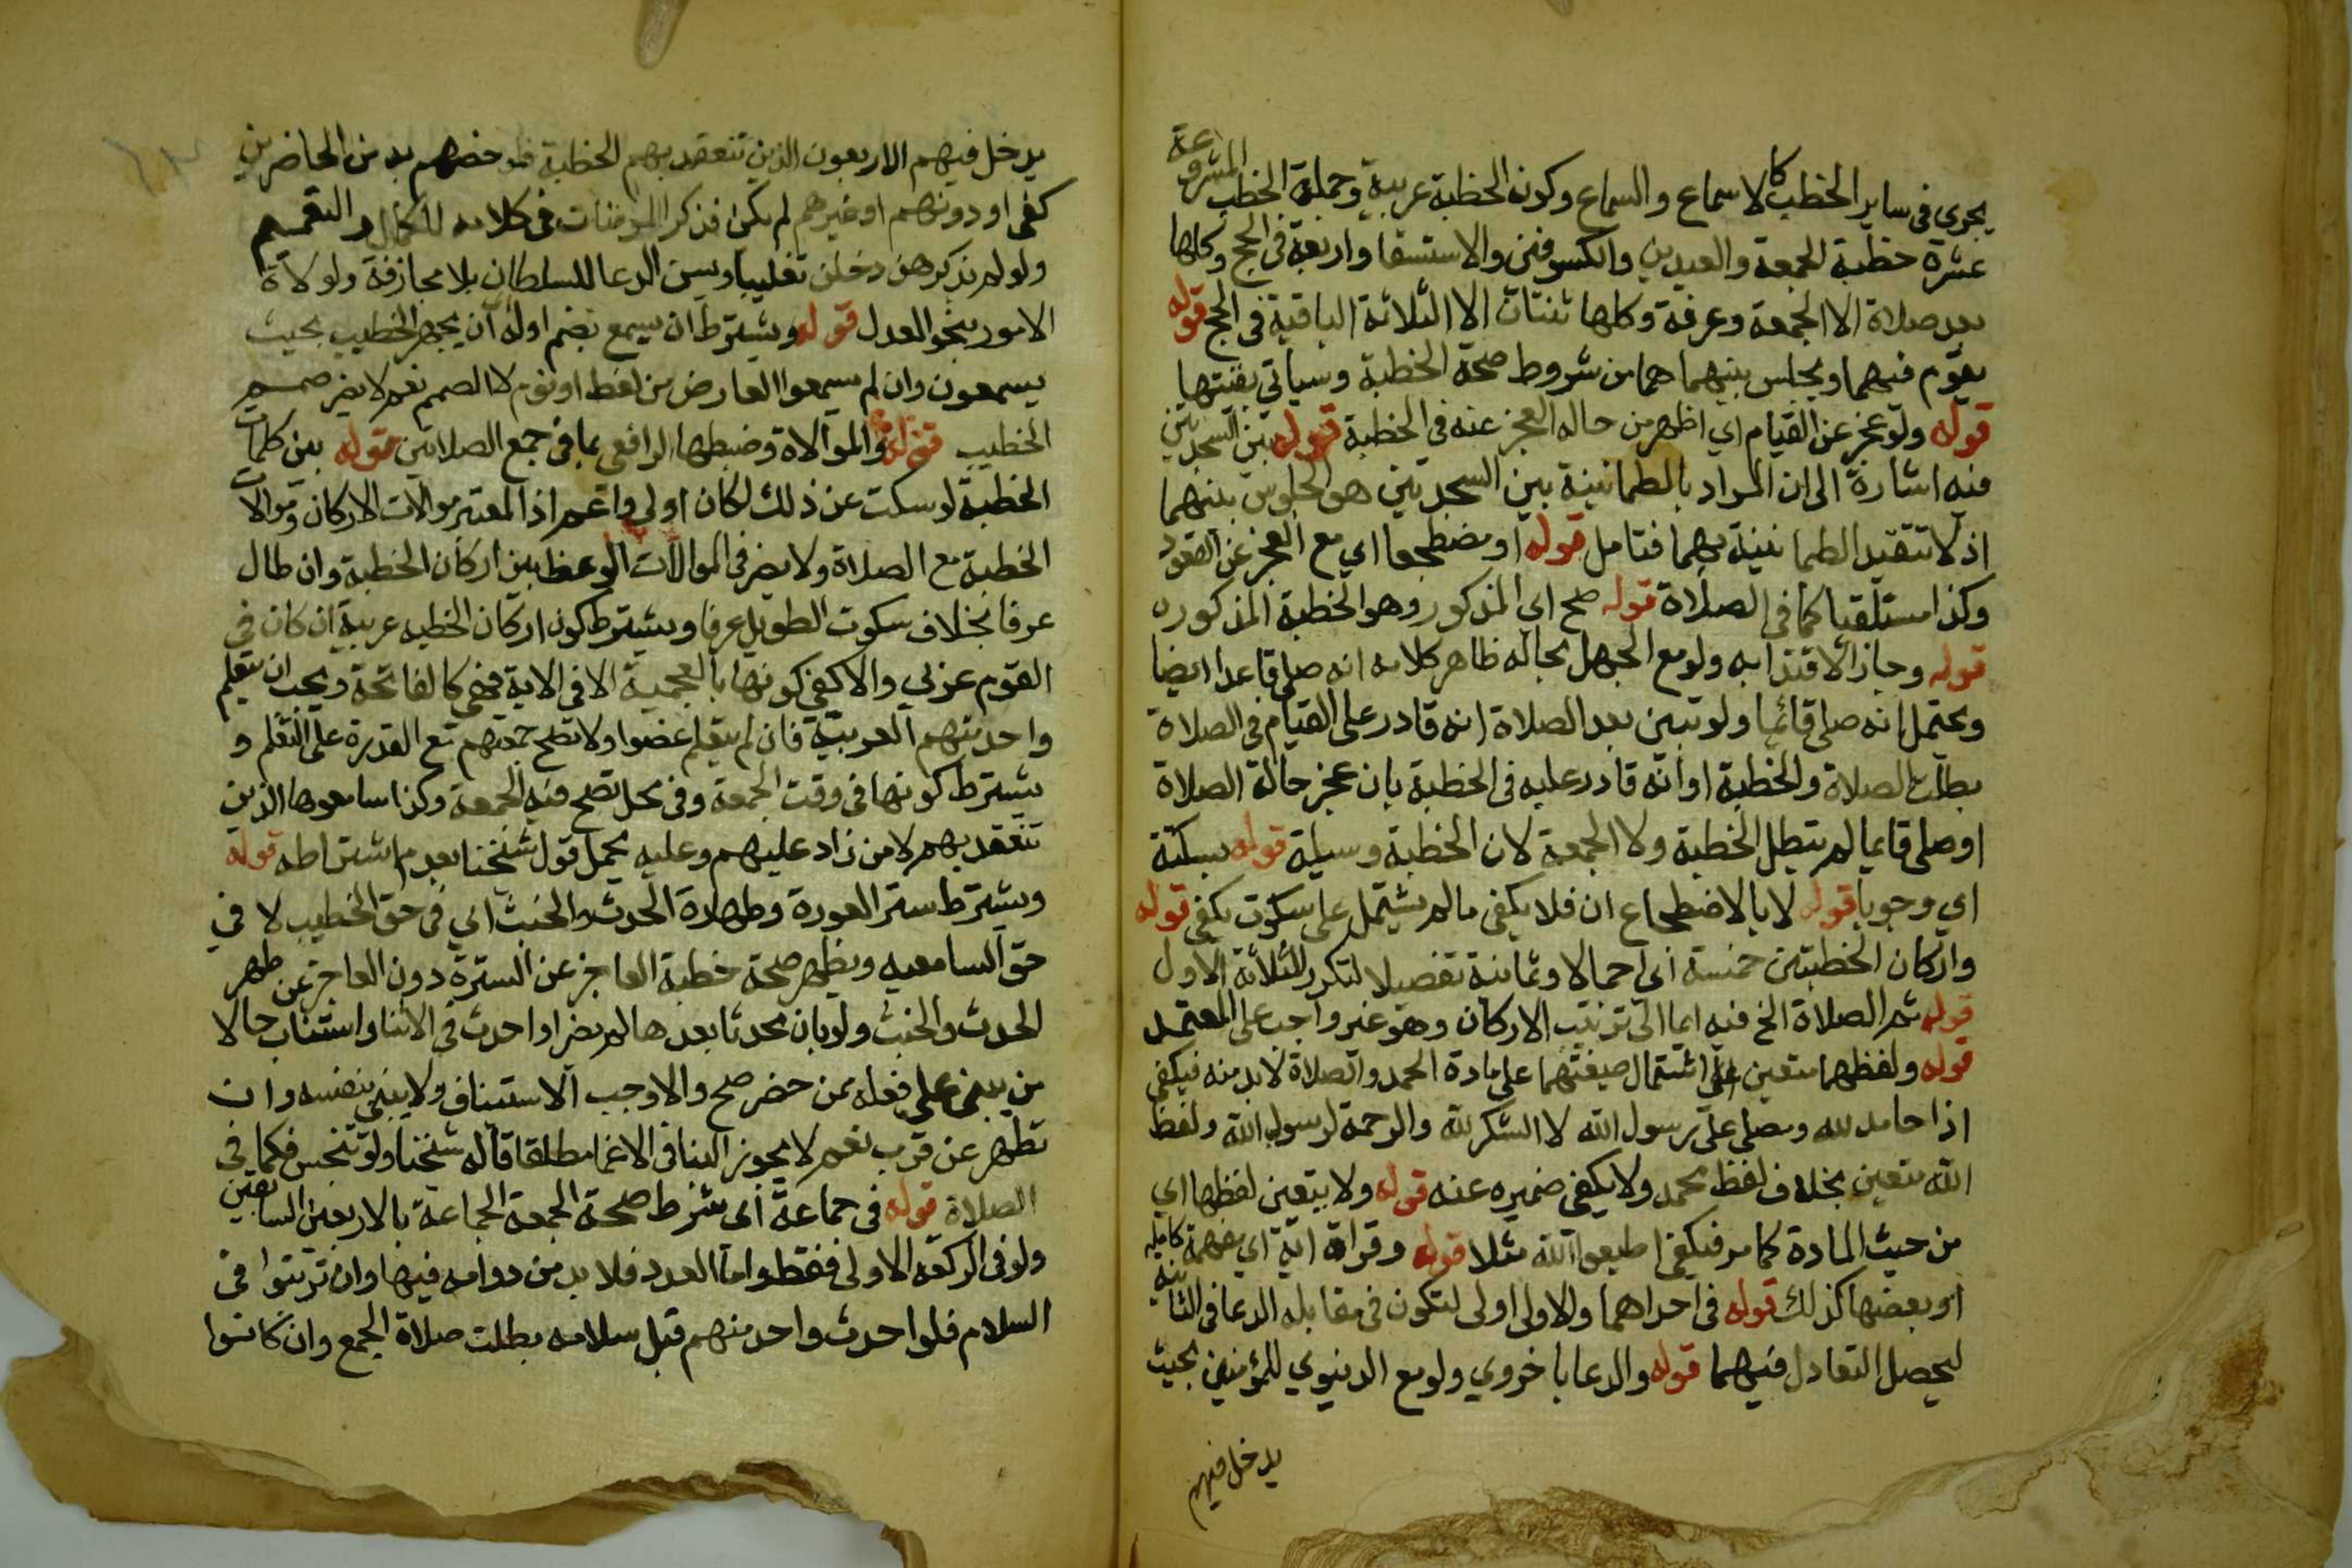 يجرى فى ساير الخطب كالاسماع والسماع وكون الخطبة عربية وجملة الخطب المشروعة
عشرة خطبة الجمعة والعيدين والكسوفين والاستسقا واربعة فى الحج وكلها
بعد صلاة الا الجمعة وعرفة وكلها ثنتان الا الثلاثة الباقية فى الحج قوله
يقوم فيهما ويجلس بينهما هما من شروط صحة الخطبة وسياتي بقيتها
قوله ولو عجز عن القيام اي اظهر من حاله العجز عنه فى الخطبة قوله بين السجدتين
فيه اشارة الى ان المراد بالطمانينة بين السجدتين هو الجلوس بينهما
اذ لا تتقيد الطمانينة بهما فتامل قوله او مضطجعا اي مع العجز عن القعود
وكذا مستلقيا كما فى الصلاة قوله صح اي المذكور وهو الخطبة المذكوره
قوله وجاز الاقتدا به ولو مع الجهل بحاله ظاهر كلامه انه صلى قاعدا ايضا
ويحتمل انه صلى قائما ولو تبين بعد الصلاة انه قادر على القيام فى الصلاة
بطلت الصلاة والخطبة او انه قادر عليه فى الخطبة بان عجز حالة الصلاة
او صلى قايما لم تبطل الخطبة ولا الجمعة لان الخطبة وسيلة قوله بسكتة
اي وجوبا قوله لا بالاضطجاع ان فلا يكفى مالم يشتمل على سكوت يكفى قوله
واركان الخطبتين خمسة اى اجمالا وثمانية تفصيلا لتكرر الثلاثة الاول
قوله ثم الصلاة الخ فيه ايما الى ترتيب الاركان وهو غير واجب على المعتمد
قوله ولفظهما متعين اى اشتمال صيغتهما على مادة الحمد والصلاة لا بد منه فيكفى
اذا حامد لله ومصلى على رسول الله لا الشكر لله والرحمة لرسول الله ولفظ
الله متعين بخلاف لفظ محمد ولا يكفى ضميره عنه قوله ولا يتعين لفظها اي
من حيث المادة كما مر فيكفى اطيعوا الله مثلا قوله وقراة اية اي مفهمة كاملة
او بعضها كذلك قوله فى احداهما والاولى اولى لتكون فى مقابلة الدعا فى الثانية
ليحصل التعادل فيهما قوله والدعا باخروي ولو مع الدنيوي للمؤمنين بحيث
يدخل فيهم
يدخل فيهم الاربعون الذين تنعقد بهم الخطبة فلو خصهم به من الحاضرين
كفى او دونهم او غيرهم لم يكف فذكر المؤمنات فى كلامه للكمال والتعميم
ولو لم يذكرهن دخلن تغليبا ويسن الدعا للسلطان بلا مجازفة ولولاة
الامور بنحو العدل قوله ويشترط ان يسمع بضم اوله اي ان يجهر الخطيب بحيث
يسمعون وان لم يسمعوا العارض من لغط او نوم لا الصمم نعم لا يضر صمم
الخطيب قوله والموالاة وضبطها الرافعي بما فى جمع الصلاتين قوله بين كلمات
الخطبة لو سكت عن ذلك لكان اولى واعم اذ المعتبر موالات الاركان وموالات
الخطبة مع الصلاة ولا يضر فى الموالات الوعظ بين اركان الخطبة وان طال
عرفا بخلاف سكوت الطويل عرفا ويشترط كون اركان الخطبه عربية ان كان فى
القوم عربي والا كفى كونها بالعجمية الا فى الاية فهى كالفاتحة ويجب ان يتعلم
واحد منهم العربية فان لم يتعلم عصوا ولا تصح جمعتهم مع القدرة على التعلم و
يشترط كونها فى وقت الجمعة وفى محل تصح فيه الجمعة وكذا سامعوها الذين
تنعقد بهم لا من زاد عليهم وعليه يحمل قول شيخنا بعدم اشتراطه قوله
ويشترط ستر العورة وطهارة الحدث والخبث اي فى حق الخطيب لا فى
حق السامعيه ويظهر صحة خطبة العاجز عن السترة دون العاجز عن طهر
الحدث والخبث ولو بان محدثا بعدها لم يضر او احدث فى الاثنا واستناب حالا
من يبنى على فعله ممن حضر صح والا وجب الاستيناف ولا يبنى بنفسه وان
تطهر عن قرب نعم لا يجوز البنا فى الاغما مطلقا قاله شيخنا ولو تنجس فكما فى
الصلاة قوله فى جماعة اى شرط صحة الجمعة الجماعة بالاربعين السابقين
ولو فى الركعة الاولى فقط واما العدد فلا بد من دوامه فيها وان ترتبوا فى
السلام فلو احدث واحد منهم قبل سلامه بطلت صلاة الجمع وان كانوا